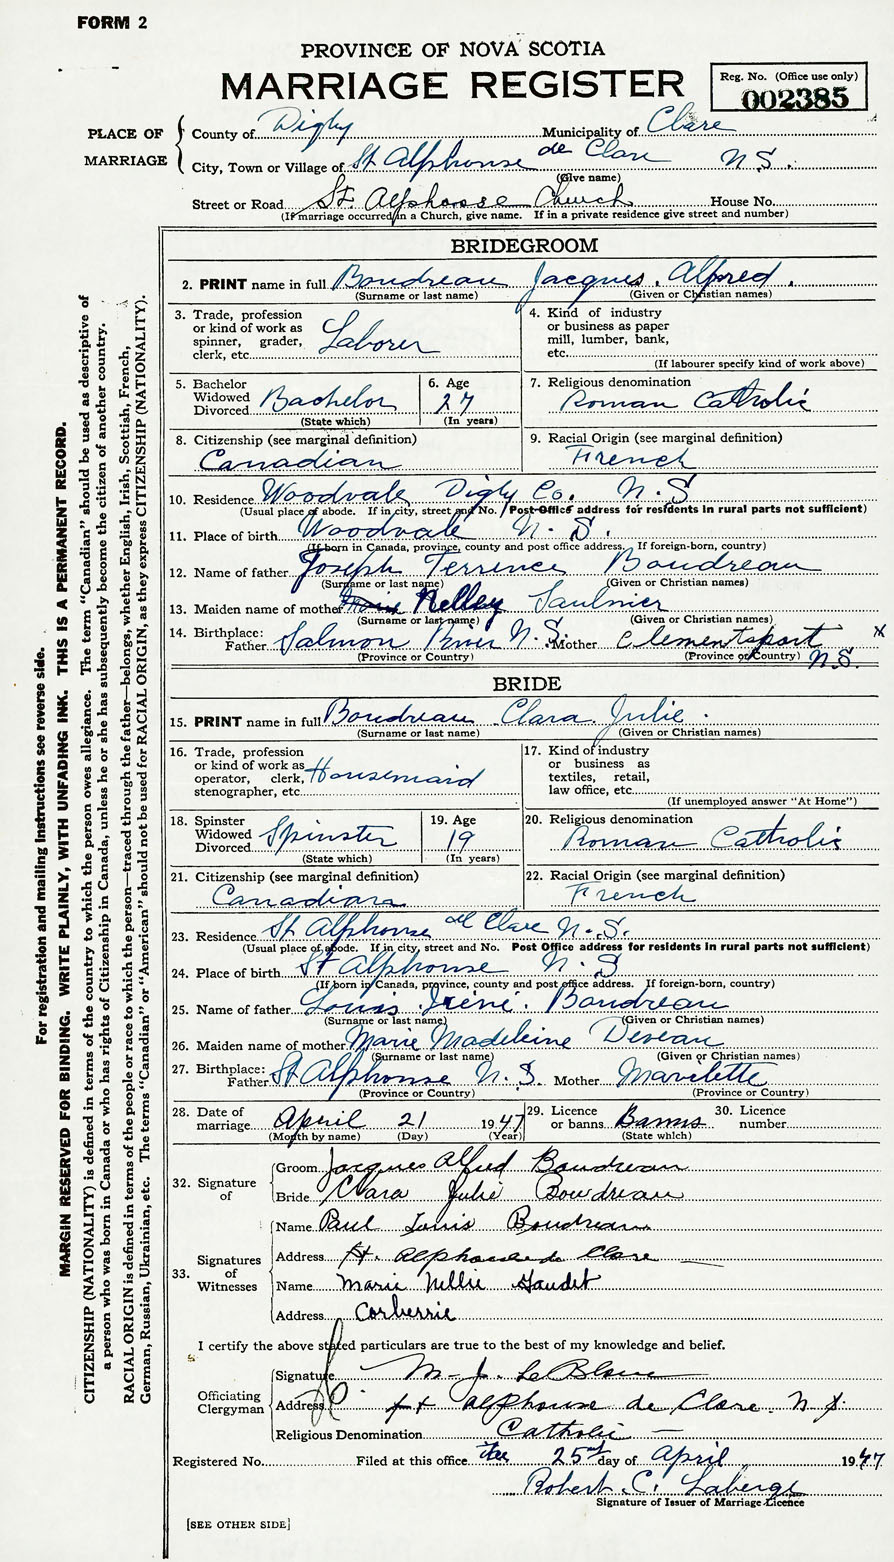 FORM 2
PROVINCE OF NOVA SCOTIA
MARRIAGE REGISTER
Reg. No. (Office use only)
002385
PLACE OF MARRIAGE
County of Digby Municipality of Clare
City, Town or Village of St Alphonse de Clare N.S.
(Give name)
Street or Road St. Alphonse Church House No.
(If marriage occurred in a Church, give name. If in a private residence give street and number)
BRIDEGROOM
2. PRINT name in full Boudreau Jacques Alfred.
(Surname or last name) (Given or Christian names)
3. Trade, profession or kind of work as spinner, grader, clerk, etc. Laborer
4. Kind of industry or business as paper mill, lumber, bank, etc.
(If labourer specify kind of work above)
5. Bachelor Widowed Divorced Bachelor
(State which)
6. Age 27
(In years)
7. Religious denomination
Roman Catholic
8. Citizenship (see marginal definition)
Canadian
9. Racial Origin (see marginal definition)
French
10. Residence Woodvale Digby Co. N.S
(Usual place of abode. If in city, street and No. Post Office address for residents in rural parts not sufficient)
11. Place of birth Woodvale N.S.
(If born in Canada, province, county and post office address. If foreign-born, country)
12. Name of father Joseph Terrence Boudreau
(Surname or last name) (Given or Christian names)
13. Maiden name of mother Nelley Saulnier
(Surname or last name) (Given or Christian names)
14. Birthplace: Father Salmon River N.S. Mother Clementsport N.S. x
(Province or Country) (Province or Country)
BRIDE
15. PRINT name in full Boudreau Clara Julie.
(Surname or last name) (Given or Christian names)
16. Trade, profession or kind of work as operator, clerk, stenographer, etc. Housemaid
17. Kind of industry or business as textiles, retail, law office, etc.
(If unemployed answer "At Home")
18. Spinster Widowed Divorced Spinster
(State which)
19. Age 19
(In years)
20. Religious denomination
Roman Catholic
21. Citizenship (see marginal definition)
Canadian
22. Racial Origin (see marginal definition)
French
23. Residence St Alphonse de Clare N.S.
(Usual place of abode. If in city, street and No. Post Office address for residents in rural parts not sufficient)
24. Place of birth St Alphonse N.S
(If born in Canada, province, county and post office address. If foreign-born, country)
25. Name of father Louis Iréné Boudreau
(Surname or last name) (Given or Christian names)
26. Maiden name of mother Marie Madeleine Deveau
(Surname or last name) (Given or Christian names)
27. Birthplace: Father St Alphonse N.S. Mother Mavilette
(Province or Country) (Province or Country)
28. Date of marriage April 21 1947
(Month by name) (Day) (Year)
29. Licence or banns Banns
(State which)
30. Licence number
32. Signature of
Groom Jacques Alfred Boudreau
Bride Clara Julie Boudreau
33. Signatures of Witnesses
Name Paul Louis Boudreau
Address St. Alphonse de Clare
Name Marie Nellie Gaudet
Address Corberrie
I certify the above stated particulars are true to the best of my knowledge and belief.
Officiating Clergyman
Signature M. J. LeBlanc
Address St Alphonse de Clare. N.S.
Religious Denomination Catholic
Registered No. Filed at this office the 25 day of April 1947
Robert C. Laberge
Signature of Issuer of Marriage Licence
[SEE OTHER SIDE]
For registration and mailing instructions see reverse side.
MARGIN RESERVED FOR BINDING. WRITE PLAINLY, WITH UNFADING INK. THIS IS A PERMANENT RECORD.
CITIZENSHIP (NATIONALITY) is defined in terms of the country to which the person owes allegiance. The term "Canadian" should be used as descriptive of
a person who was born in Canada or who has rights of Citizenship in Canada, unless he or she has subsequently become the citizen of another country.
RACIAL ORIGIN is defined in terms of the people or race to which the person—traced through the father—belongs, whether English, Irish, Scottish, French,
German, Russian, Ukrainian, etc. The terms "Canadian" or "American" should not be used for RACIAL ORIGIN, as they express CITIZENSHIP (NATIONALITY).